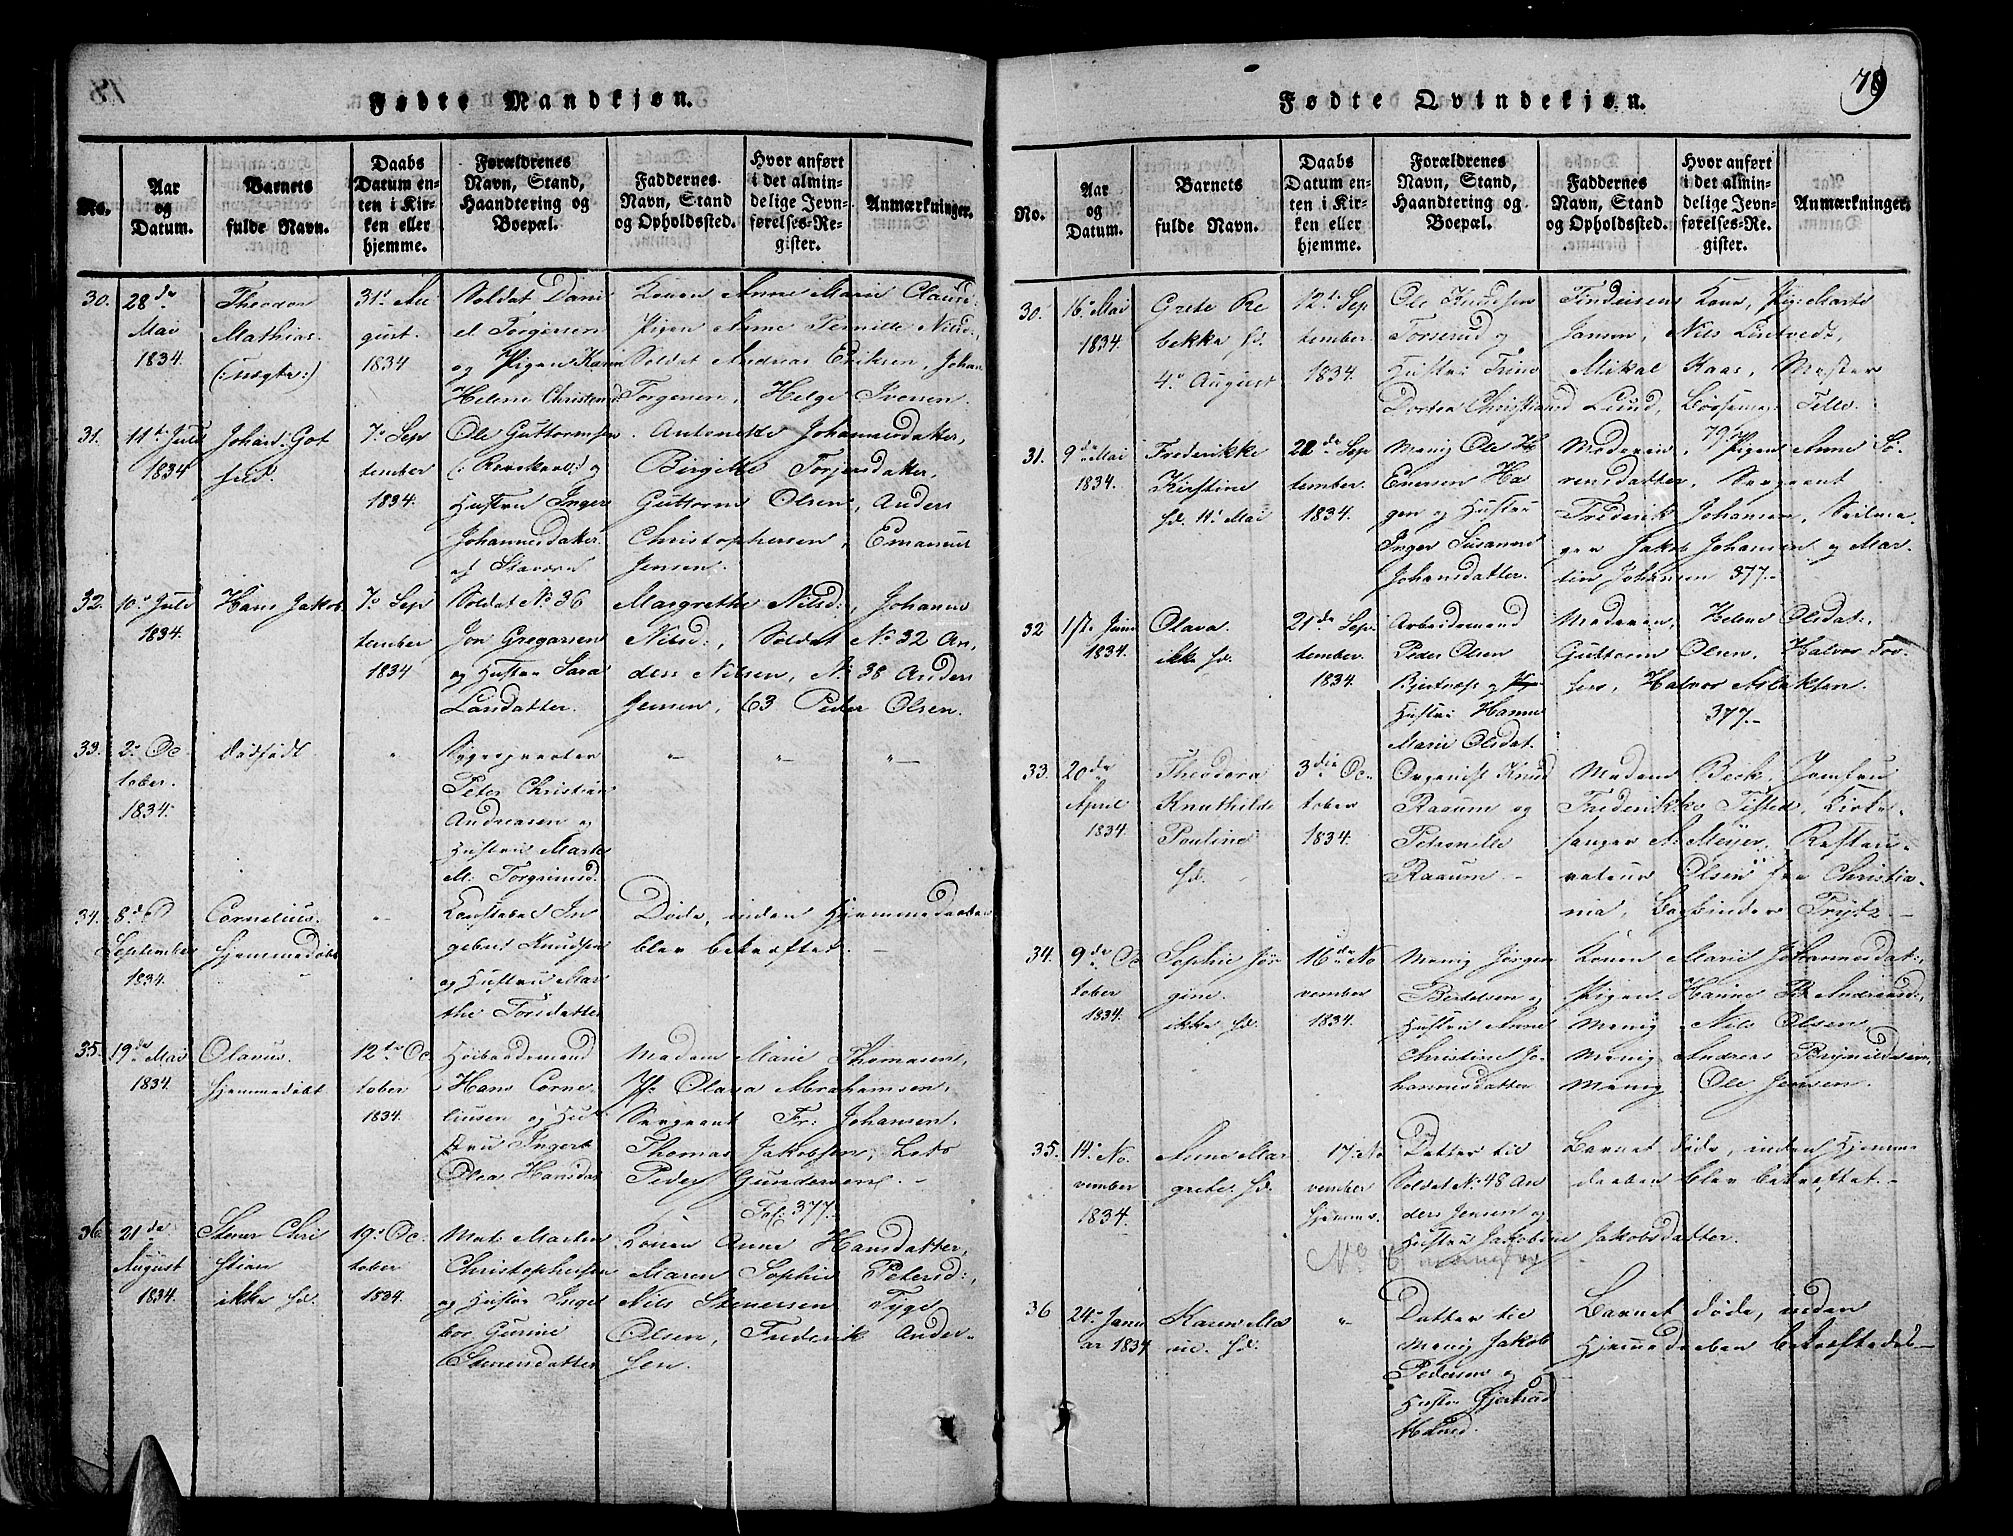 Fødte Mandkjøn.
No.
Aar
og
Datum.
Barnets
fulde Navn.
Daabs
Datum en-
ten i Kir-
ken eller
hjemme.
Forældrenes
Navn, Stand,
Haandtering og
Boepæl.
Faddernes
Navn, Stand
og Opholdssted.
Hvor anført
i det almin-
delige Jevn-
førelses-Re-
gister.
Anmærkninger.
30.
28de
Mai
1834.
Theodor
Mathias.
(:uægte:)
31t Au
gust.
1834
Soldat Dani
el Torgersen
og Pigen Karin
Helene Christensd
Konen Anne Marie Clausd:,
Pigen Anne Pernille Nilsd:,
Soldat Andreas Eriksen, Johan
Torgersen, Helge Iversen.
31.
11te Juli
1834
Johan Got
fred.
7de Sep
tember
1834.
Ole Guttormsen
og
Hustru Inger
Johannesdatter
af Stavern
Antonette Johannesdatter,
Birgitte Torjersdatter,
Guttorm Olsen, Anders
Christophersen, Emanuel
Jensen.
32.
10de Juli
1834.
Hans Jakob
7de Sep
tember
1834
Soldat No 36
Jon Gregersen
og Hustru Sara
Larsdatter.
Margrethe Nilsd:, Johanne
Nilsd:, Soldat No 32 An,
ders Nilsen, No 38 Anders
Jensen, 63 Peder Olsen.
33.
2de Oc
tober.
1834.
Dødfødt
"
Peter Christian
Andreasen og
Hustru Marte
M. Torgrimsd.
"
"
"
34.
8de
September
1834.
Cornelius.
Hjemmedøbt
"
Konstabel In
gebret Knudsen
og Hustru Mar
the Torsdatter
Døde, inden Hjemmedaaben
blev bekræftet. —
35.
19de Mai
1834.
Olavus.
hjemmedøbt
12te Oc
tober
1834.
Hans Corne
liusen og Hus
tru Ingeb
Olea Hansdat
Madam Marie Thomasen,
Jf: Olava Abrahamsen,
Sergeant Fr: Johansen.
Thomas Jakobsen, Lots
Peder Gundersen. —
377.
36.
21de
August
1834.
Stener Chri
stian
ikke hd.
19de Oc
tober
1834.
Mat: Morten
Christophersen
og Hustru Ingeb
bor Gurine
Stenersdatter
Konen Anne Hansdatter,
Maren Sophie Petersd:,
Nils Stenersen, Tyge
Olsen, Frederik Ander-
sen.
Fødte Qvindekjøn.
79
No.
Aar
og
Datum.
Barnets
fulde Navn.
Daabs
Datum en-
ten i Kir-
ken eller
hjemme.
Forældrenes
Navn, Stand,
Haandtering og
Boepæl.
Faddernes
Navn, Stand
og Opholdssted.
Hvor anført
i det almin-
delige Jevn-
førelses-Re-
gister.
Anmærkninger.
30.
16de Mai
1834.
Grete Re
bekka hd.
4de August
12te Sep
tember.
1834.
Ole Knudsen
Torserud og
Hustru Trine
Dortea Christiansd
Kone, Pig: Marte
Jansen, Nils Lindvedt,
Mikal Kaas, Mester
Lund, Bøssemag. Telle.
31.
9de Mai
1834.
Frederikke
Kirstine
hd. 11te Mai
21de Sep
tember.
1834.
Menig Ole H
Eversen Ha
gen og Hustru
Inger Susanne
Johansdatter.
Moderen, Pigen Anne Sö,
rensdatter, Sergeant
Frederik Johansen, Seilma-
ger Jakob Johansen og Mar-
tin Johansen 377.—
32
17de Juni
1834.
Olava
ikke hd.
21de Sep.
tember.
1834.
Arbeidsmand
Peder Olsen
Hustru Hanne
Marie Olsdat.
Moderen, Helene Olsdat:,
Guttorm Olsen, Halvor Tor-
sen, Halvor Aslaksen.
377.—
33.
20de
April
1834.
Theodora
Knuthilde
Pouline
hd.
3die Oc-
tober
1834.
Organist Knud
Raaum og
Petronelle
Raaum —
Madam Beck, Jomfru
Frederikke Tisted, Kirke-
sanger A. Meyer. Restau-
rateur Olsen fra Christia-
nia, Bogbinder Frytz —
34.
9de Oc
tober
1834.
Sophie Jør
gine.
ikke hd.
16de No
vember
1834.
Menig Jörgen
Bertelsen og
Hustru Anne
Christine Jo-
hannesdatter
Konen Marie Johannesdat:,
Pigen Hanne B. Andreasd:,
Menig Nils Olsen
Menig Andreas Brynildsen,
Menig Ole Jensen.
35.
14de No.
vember
1834.
Anne Mar
grete. hd.
17de No
vember
hjemme.
Datter til
Soldat No 48 An
ders Jensen og
Hustru Jakobine Jakobsdatter.
Barnet døde, inden Hjemme
daaben blev bekræftet. —
36
24de Janu
ar 1834
Karen Ma
rie. hd.
"
Datter til
Menig Jakob
Pedersen og
Hustru Gjertrud
Barnet døde, inden
Hjemmedaaben bekræftedes —